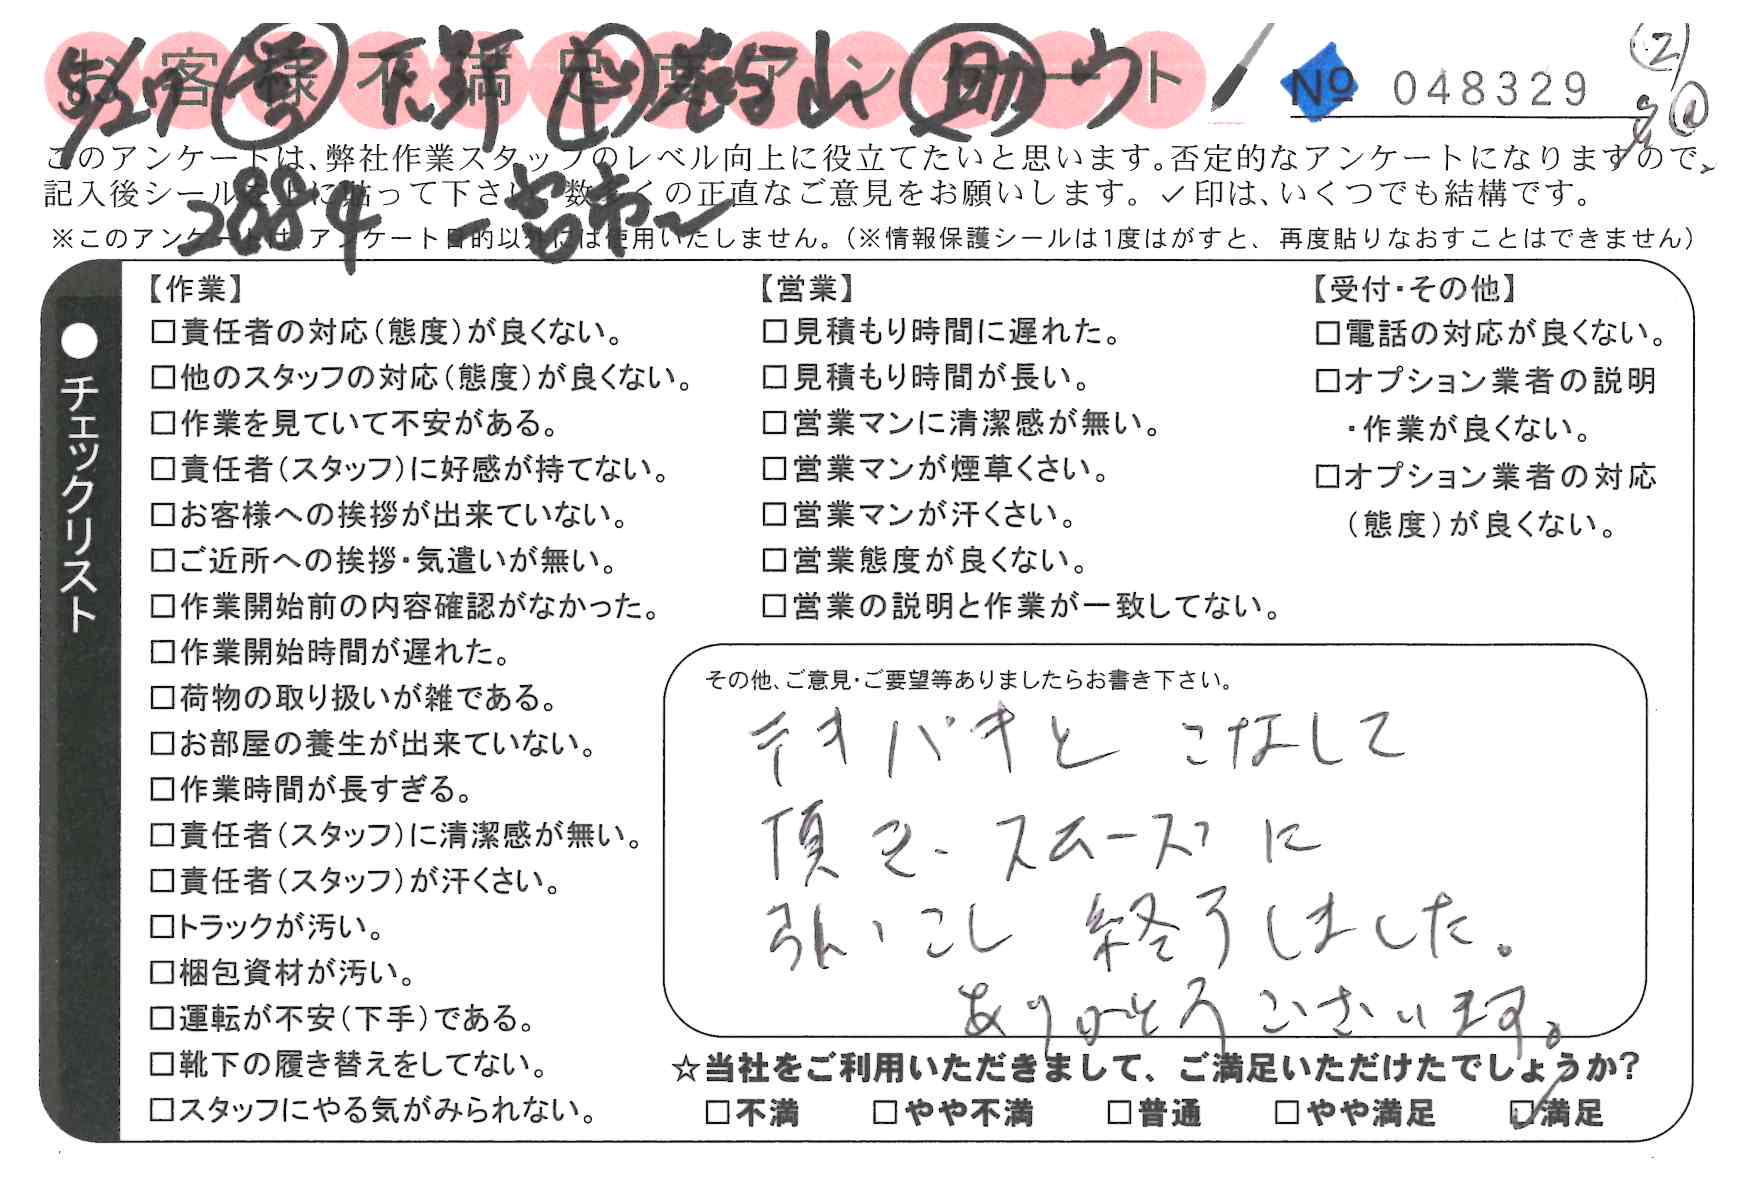 お客様不満足度アンケート
№ 048329
このアンケートは、弊社作業スタッフのレベル向上に役立てたいと思います。否定的なアンケートになりますので、
記入後シールを上に貼って下さい。数多くの正直なご意見をお願いします。✓印は、いくつでも結構です。
2884 一宮市〜
※このアンケートは、アンケート目的以外には使用いたしません。（※情報保護シールは1度はがすと、再度貼りなおすことはできません）
●チェックリスト
【作業】
□責任者の対応（態度）が良くない。
□他のスタッフの対応（態度）が良くない。
□作業を見ていて不安がある。
□責任者（スタッフ）に好感が持てない。
□お客様への挨拶が出来ていない。
□ご近所への挨拶・気遣いが無い。
□作業開始前の内容確認がなかった。
□作業開始時間が遅れた。
□荷物の取り扱いが雑である。
□お部屋の養生が出来ていない。
□作業時間が長すぎる。
□責任者（スタッフ）に清潔感が無い。
□責任者（スタッフ）が汗くさい。
□トラックが汚い。
□梱包資材が汚い。
□運転が不安（下手）である。
□靴下の履き替えをしてない。
□スタッフにやる気がみられない。
【営業】
□見積もり時間に遅れた。
□見積もり時間が長い。
□営業マンに清潔感が無い。
□営業マンが煙草くさい。
□営業マンが汗くさい。
□営業態度が良くない。
□営業の説明と作業が一致してない。
【受付・その他】
□電話の対応が良くない。
□オプション業者の説明
・作業が良くない。
□オプション業者の対応
（態度）が良くない。
その他、ご意見・ご要望等ありましたらお書き下さい。
テキパキと こなして
頂き、スムーズに
引っこし 終了しました。
ありがとうございます。
☆当社をご利用いただきまして、ご満足いただけたでしょうか？
□不満 □やや不満 □普通 □やや満足 ☑満足